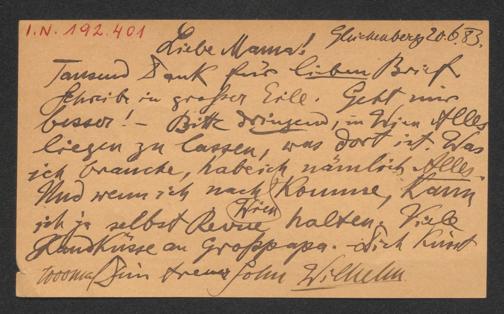 I.N. 192.401
Liebe Mama! Gleichenberg 20.6.83.
Tausend Dank für lieben Brief
Schreibe in großer Eile. Geht mir
besser! – Bitte dringend, in Wien Alles
liegen zu lassen, was dort ist. Was
ich brauche, habe ich nämlich Alles.
Und wenn ich nach Wien komme, kann
ich ja selbst Revue halten. Viele
Handküsse an Großpapa. – Dich küsst
1000mal Dein treuer Sohn Wilhelm